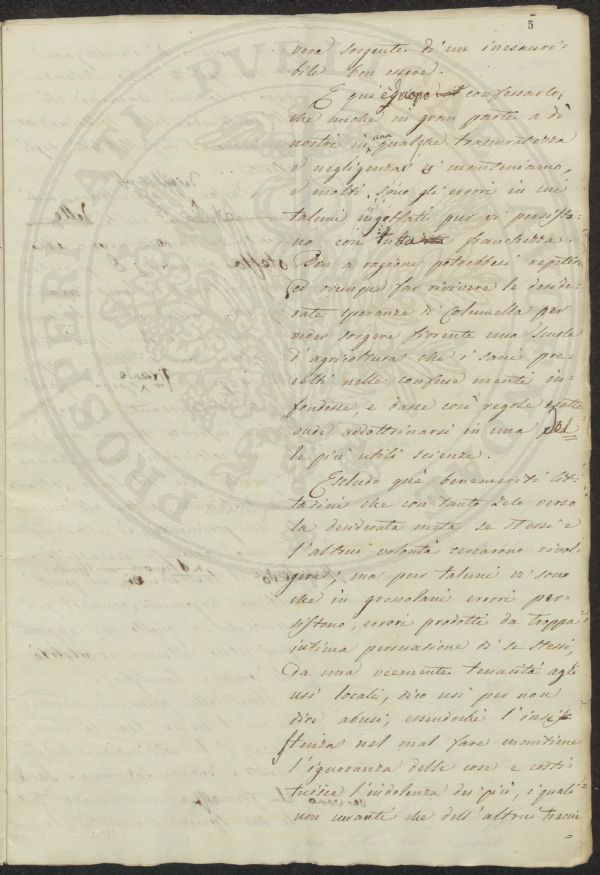 5
vera sorgente di un inesauri=
bile ben essere.
E qui è duopo confessarlo,
che anche in gran parte a dì
nostri in una qualche trascuratezza
e negligenza si manteniamo,
e molti sono gli errori in cui
taluni ingolfati pur vi persisto=
no con tutta franchezza.
Ben a ragione potrebbesi ripetere
ed ovunque far rivivere le deside=
rate speranze di Columella per
veder sorgere fiorente una scuola
d'agricoltura che i sani pre=
cetti nelle confuse menti in=
fondesse, e dasse così regole esatte
onde addottrinarsi in una del=
le più utili scienze.
Escludo què benemeriti Cit=
tadini che con tanto zelo verso
la desiderata meta se stessi e
l'altrui volontà cercarono rivol=
gere; ma pur taluni vi sono
che in grossolani errori per=
sistono, errori prodotti da troppa
intima persuasione di se stessi,
da una veemente tenacità agli
usi locali, dico usi per non
dire abusi, essendochè l'insi
stenza nel mal fare mantiene
l'ignoranza delle cose e costi=
tuisce l'indolenza dei più, i quali
non curanti che dell'altrui traccie
PROSPERITATI PUBLICAE